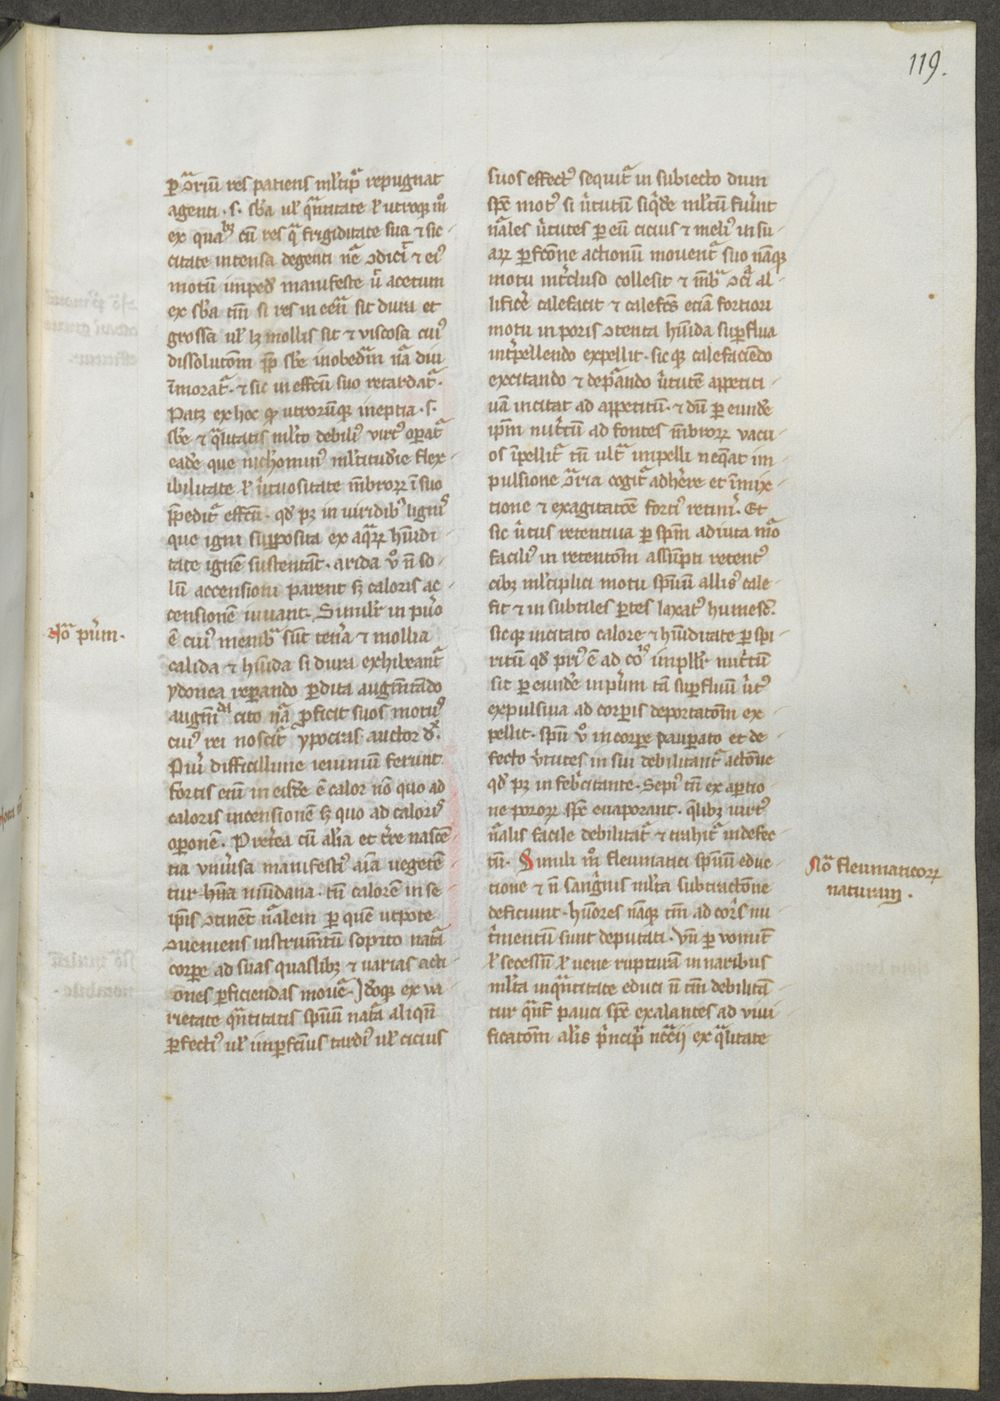 119.
ꝑ ↄ̃riū res patiens ml'tipl̃r repugnat
agenti · s · sb̃a ul' qͣntitate l' utroqꝫ m̊
ex qualꝫ cū res qͣ frigiditate sua ⁊ sic-
citate intensa degenti
motū imped manifeste ů acetum
ex sb̃a tm̄ si res in ēēn̄ sit dura et
grossa ul' lꝫ mollis sit ⁊ viscosa cui᷒
dissolutōm ꝓp sb̃e inobedīam nr̄a diu
īmorat᷑ · ⁊ sic in effc̄u suo retardat᷑ ·
Patꝫ ex hoc qꝫ utrorūqꝫ ineptia · s ·
sb̃e ⁊ qͣntitatis ml'to debili᷒ virt᷒ oꝑat᷑
eadē que nichomin᷒ ml'titudīe flex-
ibilitate l' u'tuositate mēbroꝝ ī suo
īpedit᷑ effc̄u · qd' pꝫ in viridibꝫ lignꝭ
que igni supposita ex aqͣꝝ hūidi-
tate ignem sustentant · arida v̊ n̄ so-
lū accensioni parent sꝫ caloris ac-
censionē iuuant · Simil'r in pu'o
ē cui᷒ membͣ sūt ten'a ⁊ mollia
calida ⁊ hūida si dura exhibeant᷑
ydonea reꝑando ꝑdita augm̄tādo
augm̄da cito nͣ ꝓficit suos mot᷒
cui᷒ rei noscit᷑ ypocras auctor d̄ ·
Pu'i difficillime ieiuniū ferunt
fortis eni in eisdē ē calor nō quo ad
caloris incensionē sꝫ quo ad calorꝭ
oꝑonem · Pret'ea cū alia et t're nascē-
tia vniu'sa manifesti᷒ aīa uegetē-
tur hūa mūdana · tū calorē in se
ip̄is ↄtinent nͣlem ꝑ quē utpote
ↄueniens instrum̄tū sopito natͣ
corpe ad suas quaslibꝫ ⁊ varias acti-
ones ꝑficiendas mouē · Idoqꝫ ex va-
rietate qͣntitatis spūū natͣ aliqn̄
ꝑfecti᷒ ul' imꝑfc̄ius tardi᷒ ul' cicius
suos effect᷒ sequit᷑ in subiecto dum
sp̄e mot᷒ si u'tutū siqͥde ml'tū fūint
nͣles u'tutes ꝑ eū cicius ⁊ meli᷒ in su-
aꝝ ꝑfc̄one actionū mouent᷑ suo nāqꝫ
motu int'cluso collesit ⁊ mēbͣ ↄcͣ al-
lificē calefacit ⁊ calefc̄s eciā fortiori
motu in poris ↄtenta hūida suꝑflua
int'pellendo expellit · sicqꝫ calefaciēdo
excitando ⁊ depͣuādo u'tutē appetiti-
uam incitat ad appetitū · ⁊ dū ꝑ eundē
ip̄m nut'tū ad fontes mēbroꝝ vacu-
os īpellit᷑ tū ult'ͣ impelli neqͣat im-
pulsione ↄ̃ria cogit᷑ adherē et īmix-
tione ⁊ exagitatōe forti᷒ retinꝫ · Et
sic u'tus retentiua ꝑ sp̄m adiuta m̊o
facili᷒ in retentōm assūpti retent᷒
cibꝫ ml'tiplici motu spūū allis᷒ cale-
fit ⁊ in subtiles ꝑtes laxat᷒ humesč ·
sicqꝫ incitato calore ⁊ hūiditate ꝑ spi-
ritū qd' pri᷒ ē ad corꝭ
sit ꝑ eundē inpūm tā suꝑfluū u't᷒
expulsiua ad corꝑis deportatōm ex-
pellit · spūū v̊ in corꝑe pauꝑato et de-
fecto u'tutes in sui debilitant᷑ actiōne
qd' pꝫ in feb'citante · Sepi᷒ tū ex aꝑtio-
ne poroꝝ sp̄e euaporant · qͣlibꝫ virt᷒
nͣlis facile debilitat᷑ ⁊ trahit᷑ in defec-
tū · Simili m̊ fleumatici spūū educ-
tione ⁊ n̄ sangͥnis ml'ta subtractōne
deficiunt · hūores nāqꝫ tm̄ ad corꝭ nu-
t'mentū sunt deputati · Vn̄ ꝑ vomit᷒
l' secessū l' uene rupturā in naribus
ml'ta inqͣntitate educti n̄ tm̄ debilitā-
tur qͣnt᷒ pauci sp̄e exalantes ad viui-
ficatōm al's pͥncipͣl' n̄cc̄ii ex qͣlitate
Noͣ pu'm ·
Noͣ fleumaticoꝝ
naturam ·